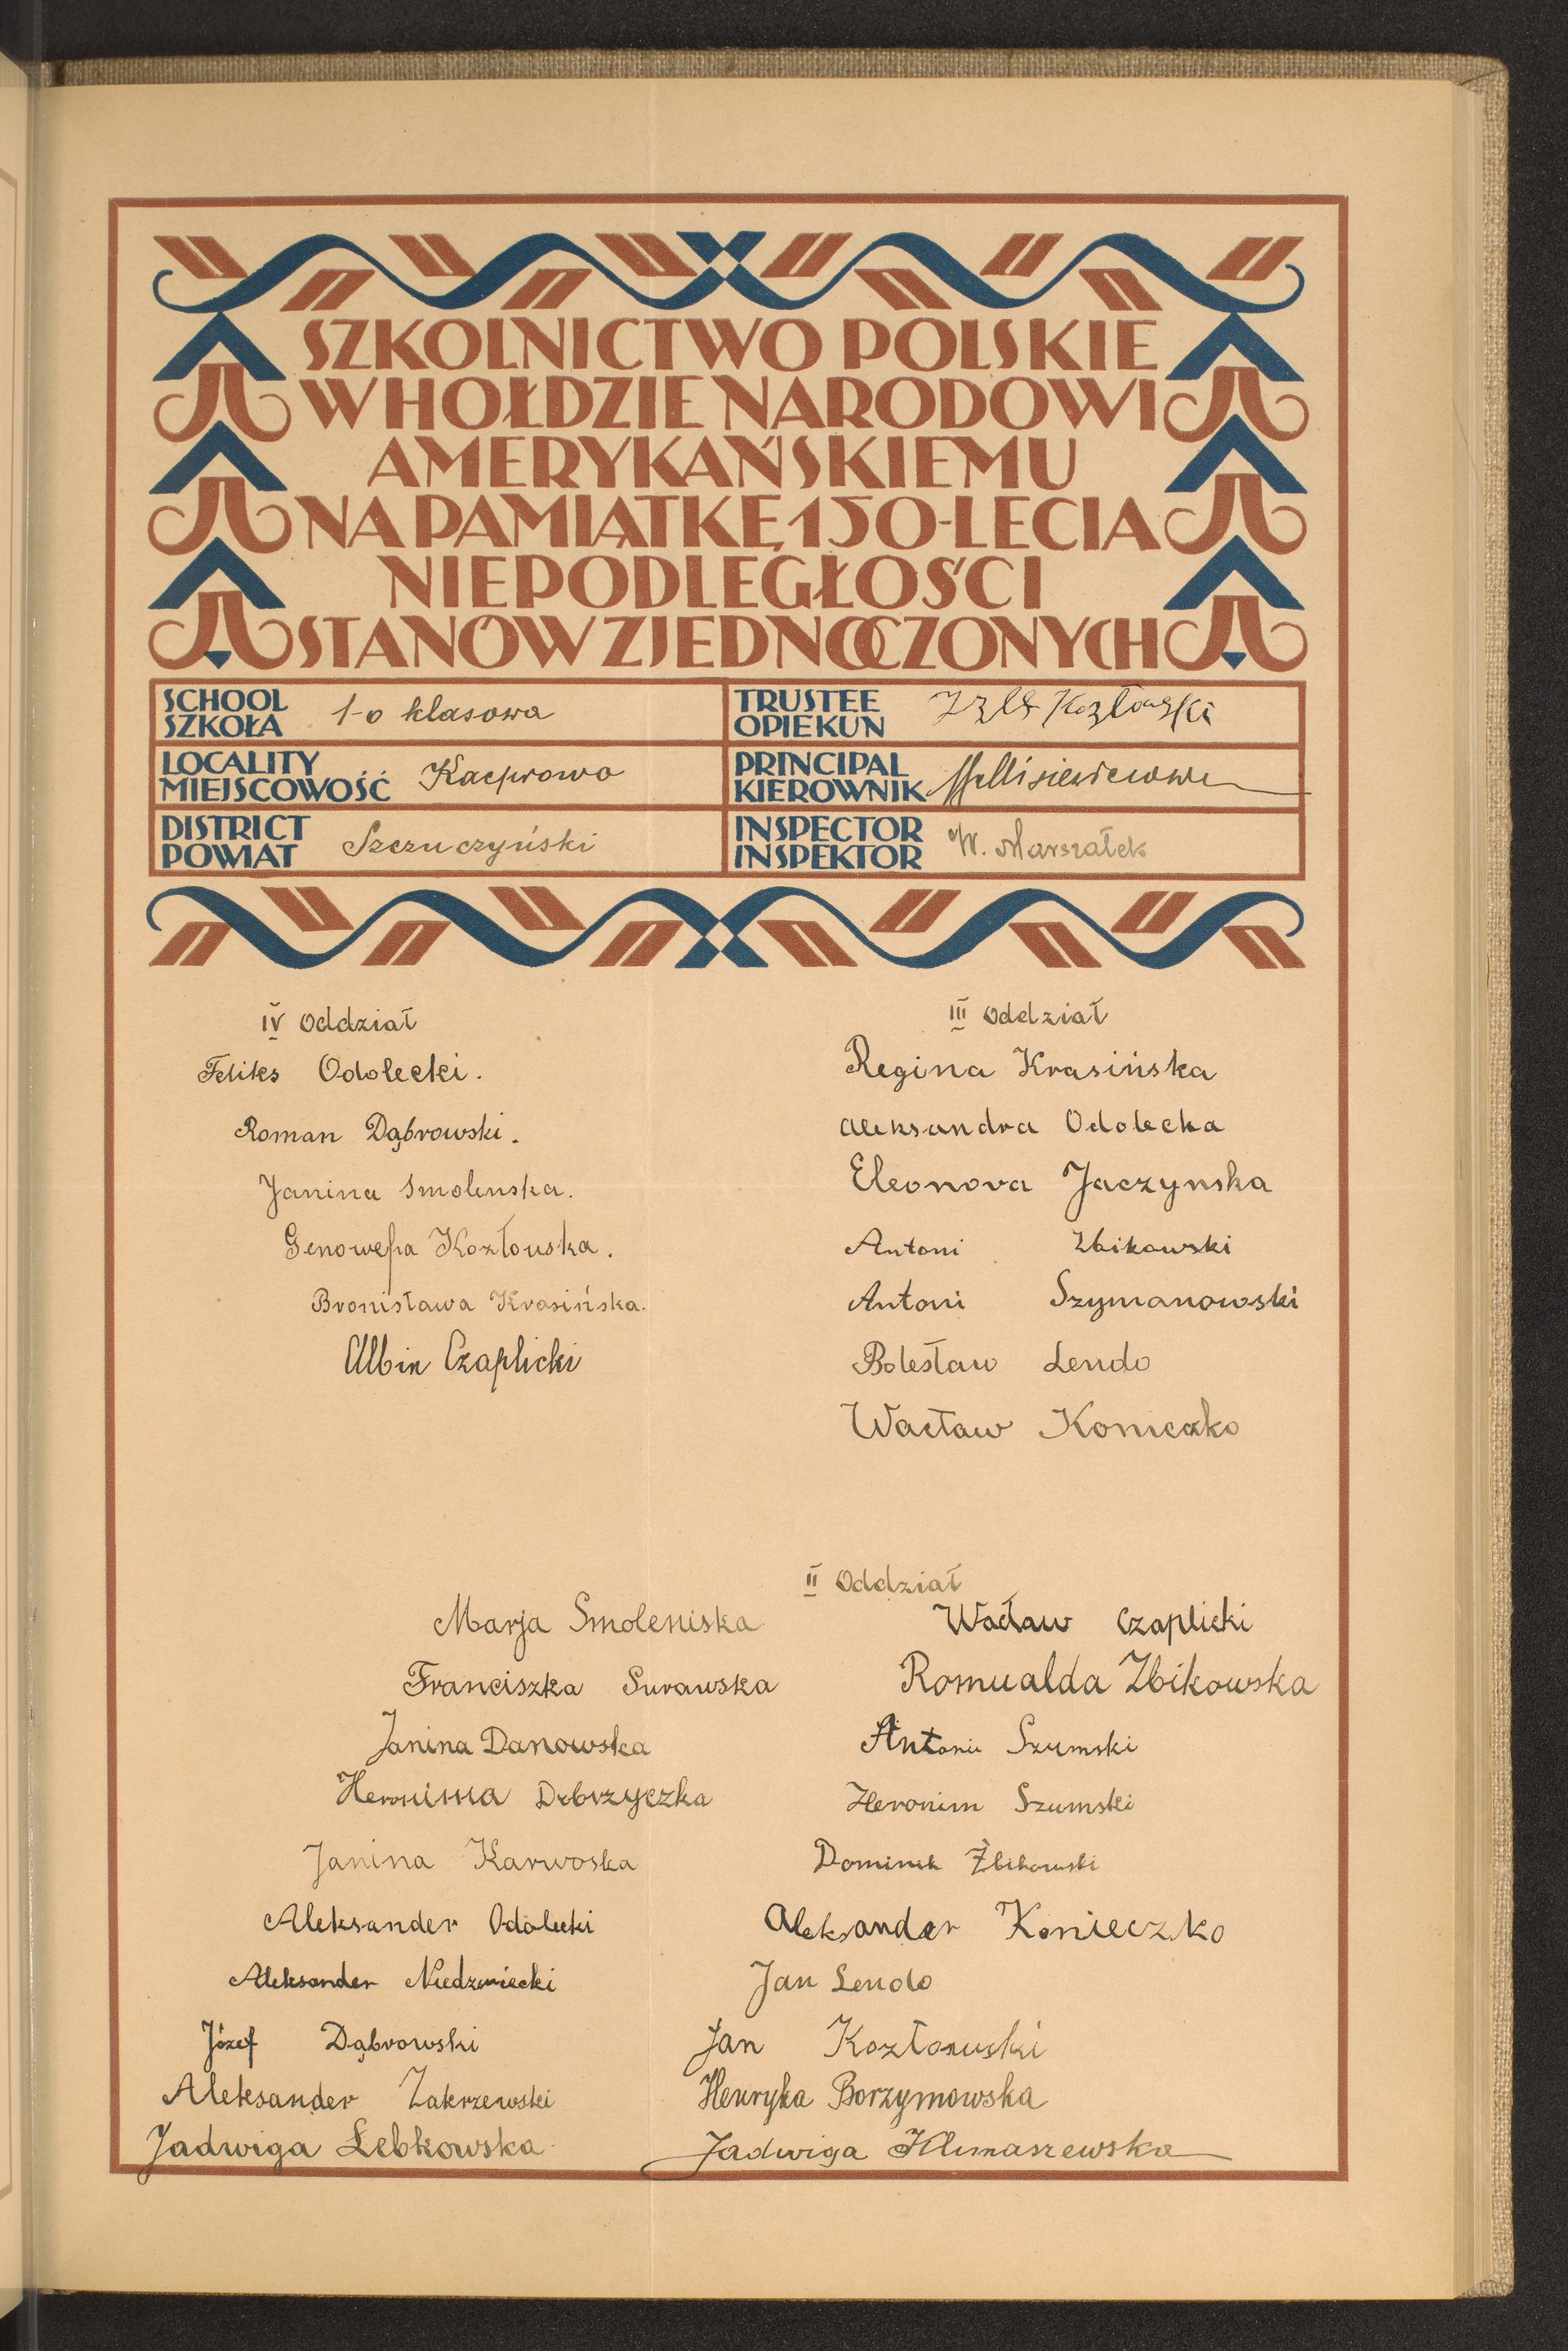 SZKOLNICTWO POLSKIE
W HOŁDZIE NARODOWI
AMERYKAŃSKIEMU
NA PAMIĄTKĘ 150-LECIA
NIEPODLEGŁOŚCI
STANÓW ZJEDNOCZONYCH
SCHOOL
SZKOŁA 1-o klasowa
TRUSTEE
OPIEKUN Kozłowski
LOCALITY
MIEJSCOWOŚĆ Kacprowo
PRINCIPAL
KIEROWNIK
DISTRICT
POWIAT Szczuczyński
INSPECTOR
INSPEKTOR W. Marszałek
IV Oddział
Feliks Odolecki.
Roman Dąbrowski.
Janina Smolenska.
Genowefa Kozłouska.
Bronisława Krasińska.
Albin Czaplicki
III Oddział
Regina Krasińska
Aleksandra Odolecka
Eleonora Jaczynska
Antoni Zbikowski
Antoni Szymanowski
Bolesław Lendo
Wacław Konieczko
II Oddział
Marja Smoleniska
Franciszka Surawska
Janina Danowska
Heronima Dobrzyczka
Janina Karwoska
Aleksander Odolecki
Aleksander Niedzwiecki
Józef Dąbrowski
Aleksander Zakrzewski
Jadwiga Łebkowska
Wacław Czaplicki
Romualda Zbikowska
Antoni Szumski
Heronim Szumski
Dominik Żbikowski
Aleksander Konieczko
Jan Lendo
Jan Kozłowski
Henryka Borzymowska
Jadwiga Klimaszewska